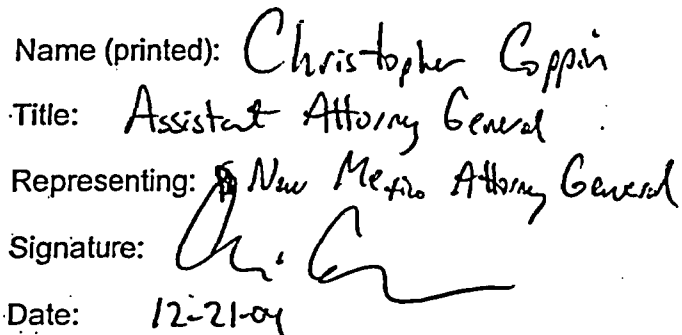 Name (printed): Christopher Coppin
Title: Assistant Attorney General
Representing: New Mexico Attorney General
Signature:
Date: 12-21-04